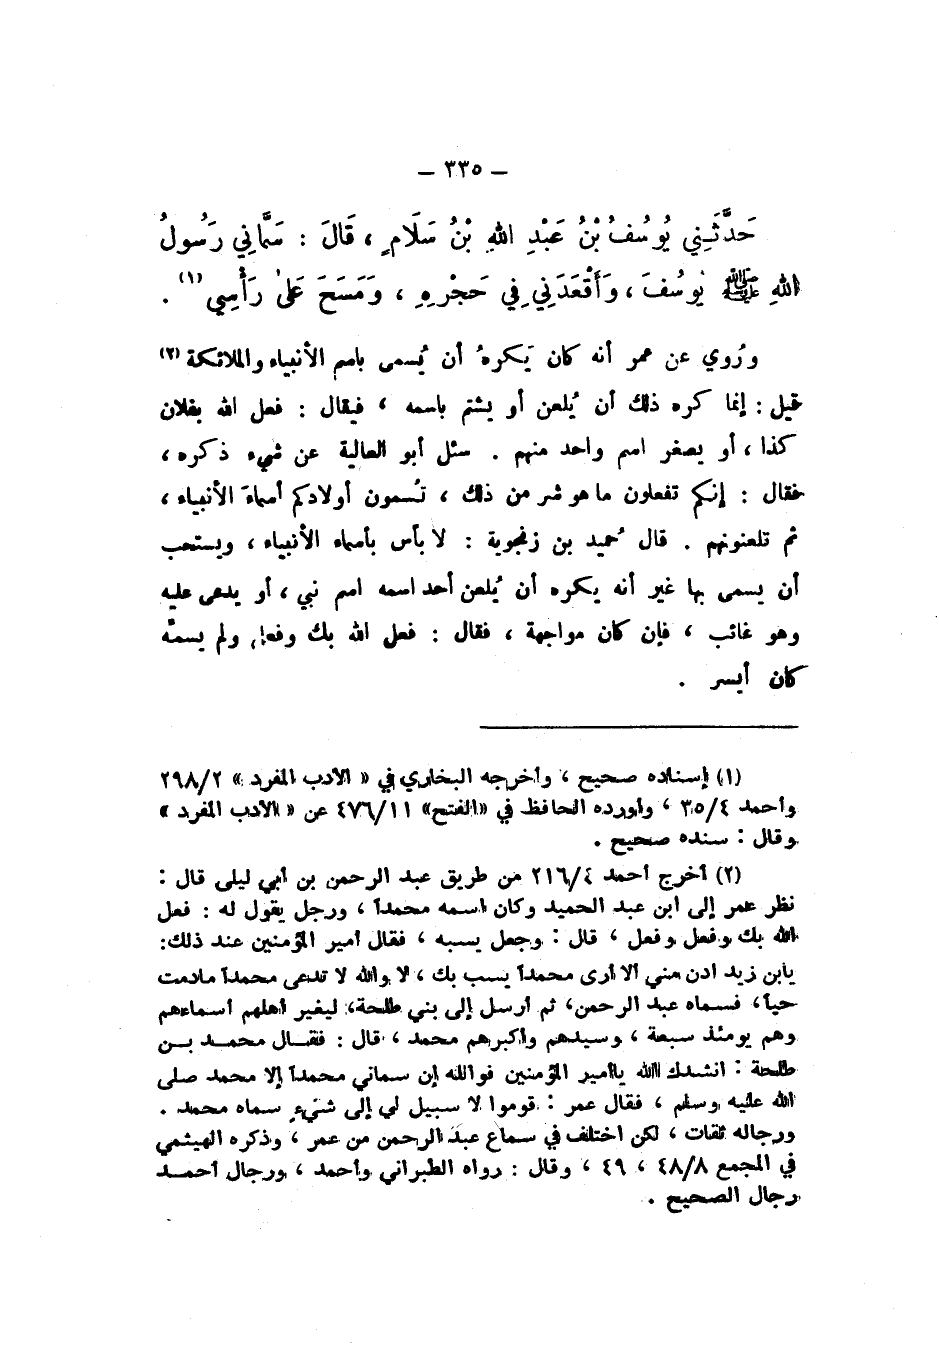 – ٣٣٥ –
حَدَّثَنِي يُوسُفُ بْنُ عَبْدِ اللهِ بْنُ سَلَامٍ ، قَالَ : سَمَّانِي رَسُولُ
اللهِ ﷺ يُوسُفَ ، وَأَقْعَدَنِي فِي حَجْرِهِ ، وَمَسَحَ عَلىٰ رَأْسِي (١) .
ورُوي عن عمر أنه كان يَكرهُ أن يُسمى باسم الأنبياء والملائكة (٢)
قيل : إنما كره ذلك أن يُلعن أو يشتم باسمه ، فيقال : فعل الله بفلان
كذا ، أو يصغر اسم واحد منهم . سئل أبو العالية عن شيء ذكره ،
فقال : إنكم تفعلون ما هو شر من ذلك ، تُسمون أولادكم أسماءَ الأنبياء ،
ثم تلعنونهم . قال حُميد بن زنجوية : لا بأس بأسماء الأنبياء ، ويستحب
أن يسمى بها غير أنه يكره أن يُلعن أحد اسمه اسم نبي ، أو يدعى عليه
وهو غائب ، فإن كان مواجهة ، فقال : فعل الله بك وفعل ولم يسمّه
كان أيسر .
(١) إسناده صحيح ، وأخرجه البخاري في « الأدب المفرد » ٢٩٨/٢
وأحمد ٣٥/٤ ، وأورده الحافظ في «الفتح» ٤٧٦/١١ عن « الأدب المفرد »
وقال : سنده صحيح .
(٢) أخرج أحمد ٢١٦/٤ من طريق عبد الرحمن بن أبي ليلى قال :
نظر عمر إلى ابن عبد الحميد وكان اسمه محمداً ، ورجل يقول له : فعل
الله بك وفعل وفعل ، قال : وجعل يسبه ، فقال أمير المؤمنين عند ذلك:
يا بن زيد ادن مني ألا أرى محمداً يسب بك ، لا والله لا تدعى محمداً مادمت
حياً ، فسماه عبد الرحمن، ثم أرسل إلى بني طلحة، ليغير أهلهم أسماءهم
وهم يومئذ سبعة ، وسيدهم وأكبرهم محمد ، قال : فقال محمد بن
طلحة : أنشدك الله ياأمير المؤمنين فوالله إن سماني محمداً إلا محمد صلى
الله عليه وسلم ، فقال عمر : قوموا لا سبيل لي إلى شيءٍ سماه محمد .
ورجاله ثقات ، لكن اختلف في سماع عبد الرحمن من عمر ، وذكره الهيثمي
في المجمع ٤٨/٨ ، ٤٩ ، وقال : رواه الطبراني وأحمد ، ورجال أحمد
رجال الصحيح .